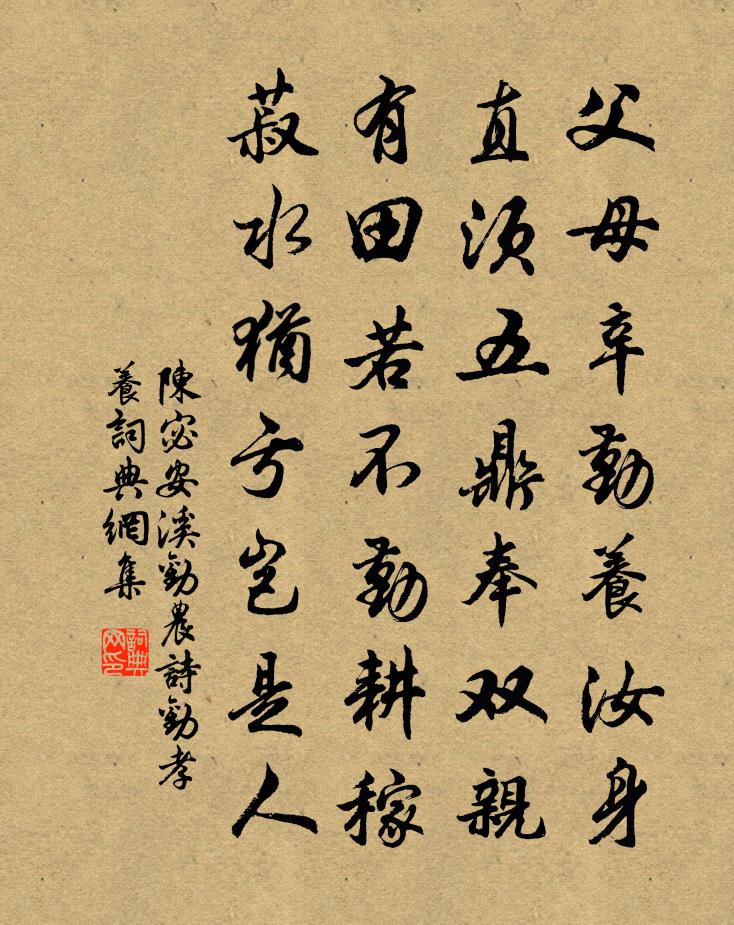 父母辛勤養汝身
直須五鼎奉双親
有田若不勤耕稼
菽水猶亏岂是人
陳宓安溪勸農詩勸孝
養詞典網集
詞典
网印